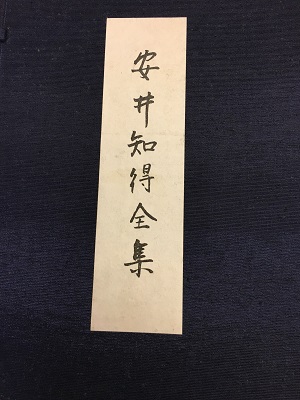 安井知得全集